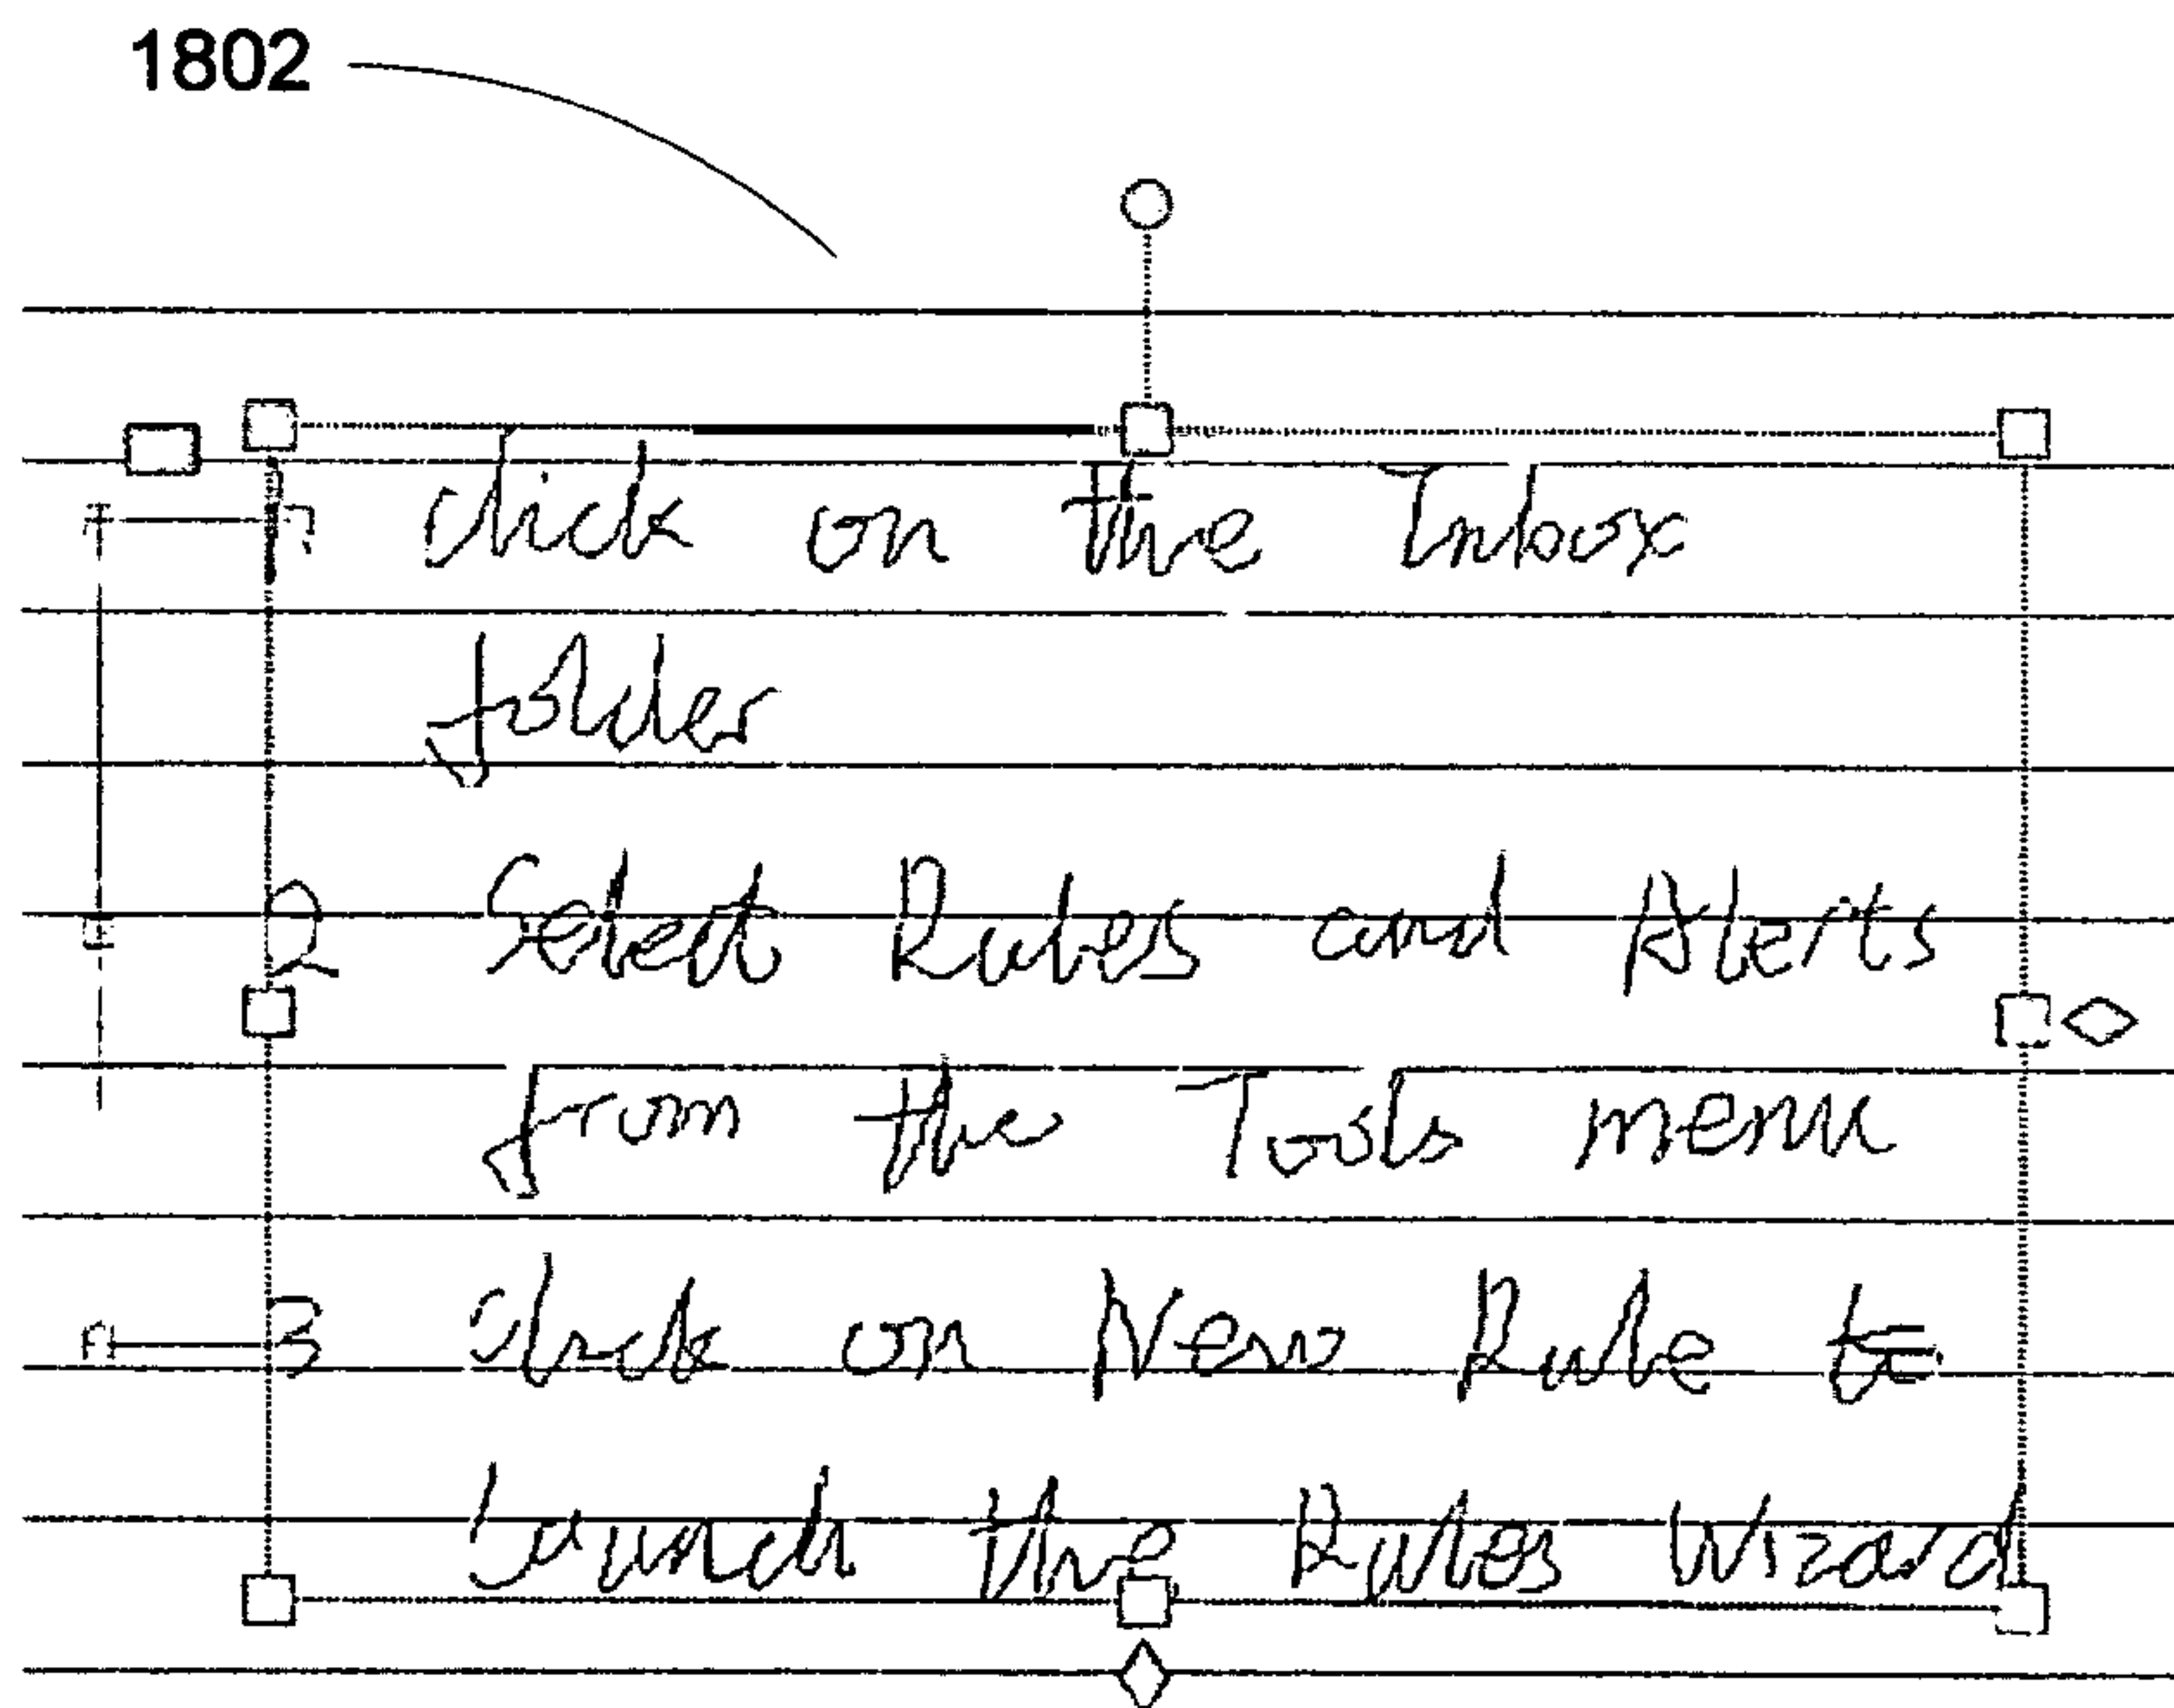 1802
1 click on the Inbox
folder
2 Select Rules and Alerts
from the Tools menu
3 Click on New Rule to
launch the Rules Wizard